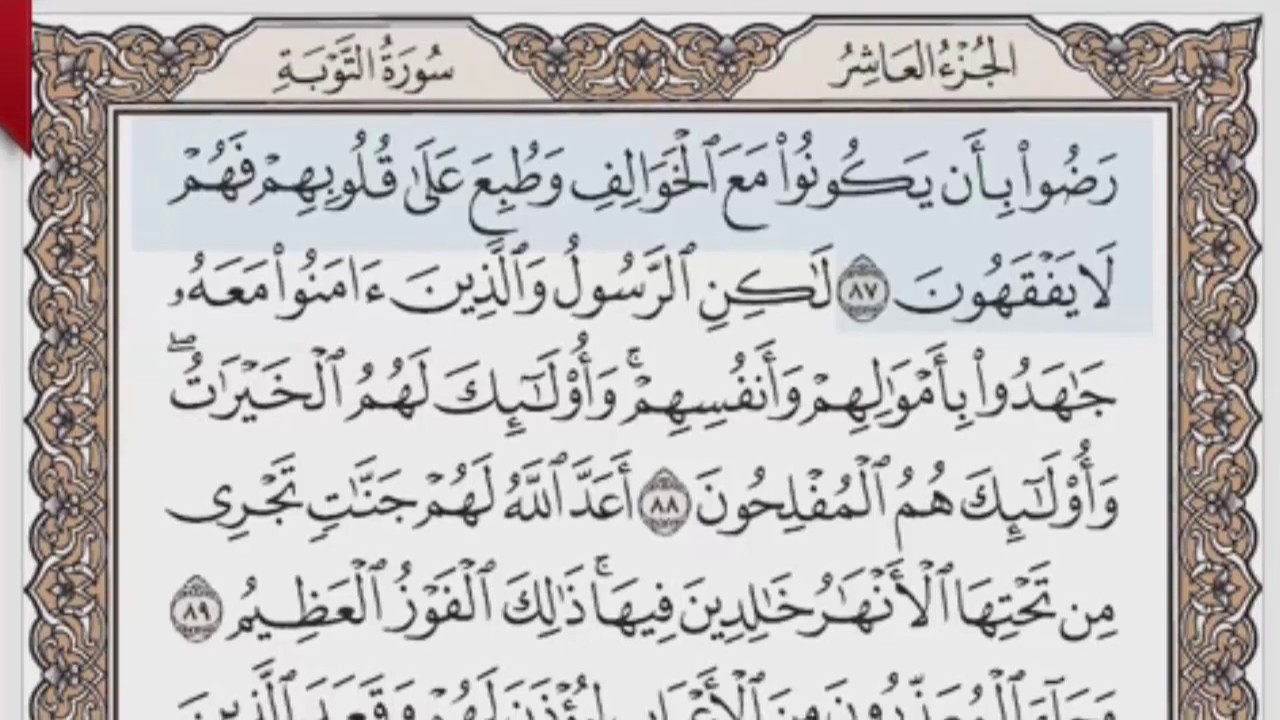 الجُزْءُ العَاشِرُ
سُورَةُ التَّوْبَةِ
رَضُوا۟ بِأَن يَكُونُوا۟ مَعَ ٱلْخَوَالِفِ وَطُبِعَ عَلَىٰ قُلُوبِهِمْ فَهُمْ
لَا يَفْقَهُونَ ٨٧ لَٰكِنِ ٱلرَّسُولُ وَٱلَّذِينَ ءَامَنُوا۟ مَعَهُۥ
جَٰهَدُوا۟ بِأَمْوَٰلِهِمْ وَأَنفُسِهِمْ ۚ وَأُو۟لَٰٓئِكَ لَهُمُ ٱلْخَيْرَٰتُ ۖ
وَأُو۟لَٰٓئِكَ هُمُ ٱلْمُفْلِحُونَ ٨٨ أَعَدَّ ٱللَّهُ لَهُمْ جَنَّٰتٍ تَجْرِى
مِن تَحْتِهَا ٱلْأَنْهَٰرُ خَٰلِدِينَ فِيهَا ۚ ذَٰلِكَ ٱلْفَوْزُ ٱلْعَظِيمُ ٨٩
وَجَآءَ ٱلْمُعَذِّرُونَ مِنَ ٱلْأَعْرَابِ لِيُؤْذَنَ لَهُمْ وَقَعَدَ ٱلَّذِينَ